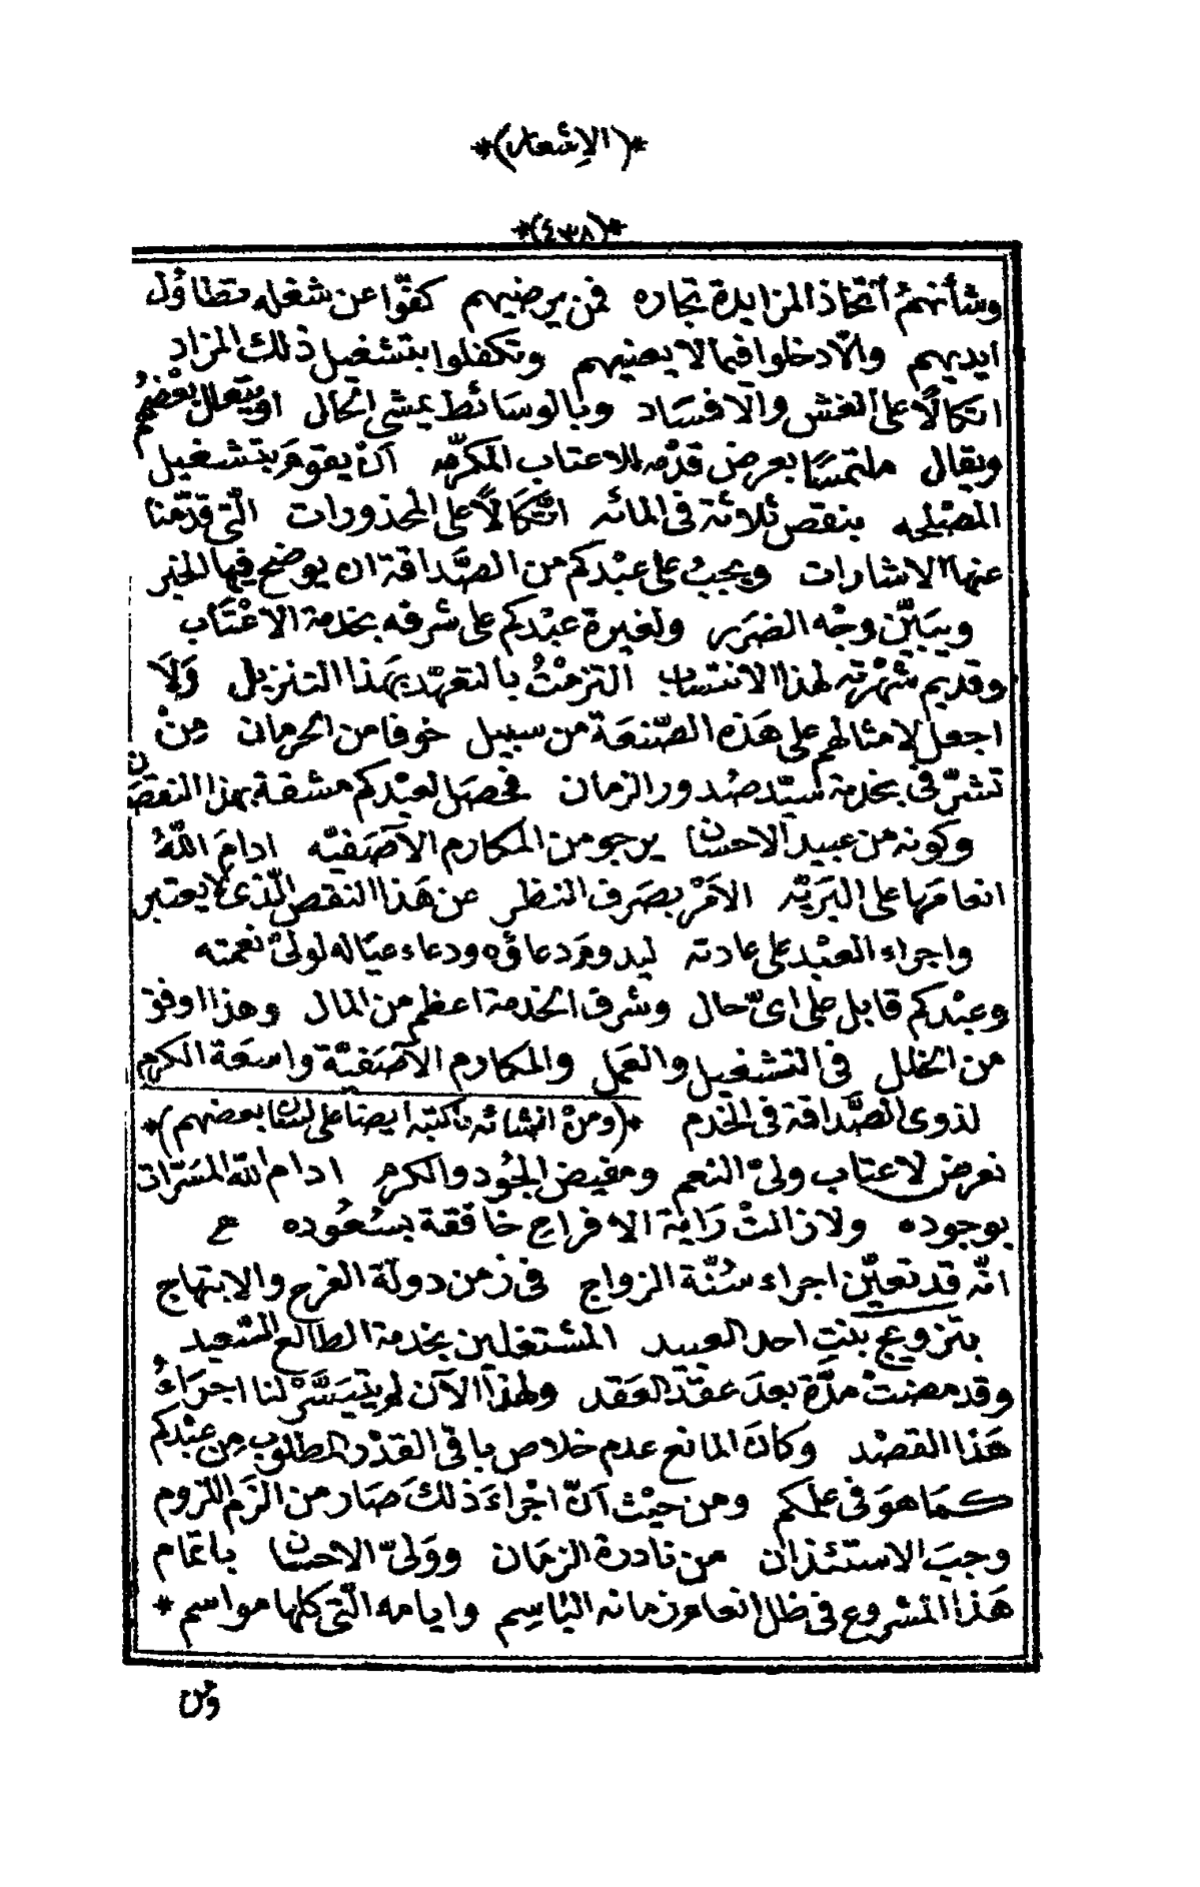 *(الإشعار)*
*(٤٣٨)*
وشأنهمُ اتخاذ المزايدة تجاره فمن يرضيهم كفّوا عن شغله تطاوُل
ايديهم والّا دخلوا فيما لا يعنيهم وتكفلوا بتشغيل ذلك المزاد
اتكالًا على الغش والافساد وبالوسائط يمشى الحال او يتعلل بعْضهمُ
ويقال ملتمسًا بعرض قدّمه للاعتاب المكرّمه أنْ يقومَ بتشغيل
المصْلحه بنقص ثلاثة فى المائه اتّكالًا على المحذورات الّتى قدّمنا
عنها الاشارات ويجبُ على عبْدكم من الصَّداقة ان يوضح فيها الخبر
ويبَيّن وجْه الضرر ولغيرة عبْدكم على شرفه بخدمة الاعْتَاب
وقديم شهْرته لهذا الانتساب التزمْتُ بالتعهّد بهَذا التنزيل وَلَا
اجعل لامثالهم على هَذه الصّنعَة من سبيل خوفا من الحرمان مِنْ
تشرّفى بخدمة سيّد صُدور الزمان فحصَل لعبْدكم مشقة بهذا النقصَان
وكونه من عبيد الاحسان يرجو من المكارم الآصَفيّه ادامَ اللّهُ
انعامَها على البَريّه الامْر بصَرف النظر عن هَذا النقص الّذى لا يعتبر
واجراء العبْد على عادته ليدومَ دعاؤه ودعاء عيّاله لولىّ نعمته
وعبْدكم قابل على اىّ حال وشرف الخدمة اعظم من المال وهذا اوفق
من الخلل فى التشغيل والعمَل والمكارم الآصَفيّة واسعَة الكرم
لذوى الصَّداقة فى الخدم *(ومنْ انشائه ما كتبه ايضا على لسان بعضهم)*
نعرض لاعتاب ولىّ النعم ومفيض الجُود والكرم ادام الله المسَرّات
بوجوده ولا زالتْ رَايَة الافراح خافقة بسُعُوده
انّه قد تعيّن اجراء سُنّة الزواج فى زمن دولة الفرح والابتهاج
بتزويج بنتِ احد العبيد المشتغلين بخدمة الطالع السّعيد
وقد مضتْ مدّة بعدَ عقد العَقد ولهذا الآن لم يتيَسَّرْ لنا اجرَاءُ
هَذا القصْد وكانَ المانع عدم خلاص باقى القدْر المطلوب مِن عبْدكم
كمَا هوَ فى علمكم ومن حيْث أنّ اجْراءَ ذلكَ صَار من الزَم اللزوم
وجبَ الاستئذان من نادرة الزمَان ووَلىّ الاحسان باتمام
هَذا المشروع فى ظل انعام زمانه البَاسِم وايامه الّتى كلها مواسم *
ومن